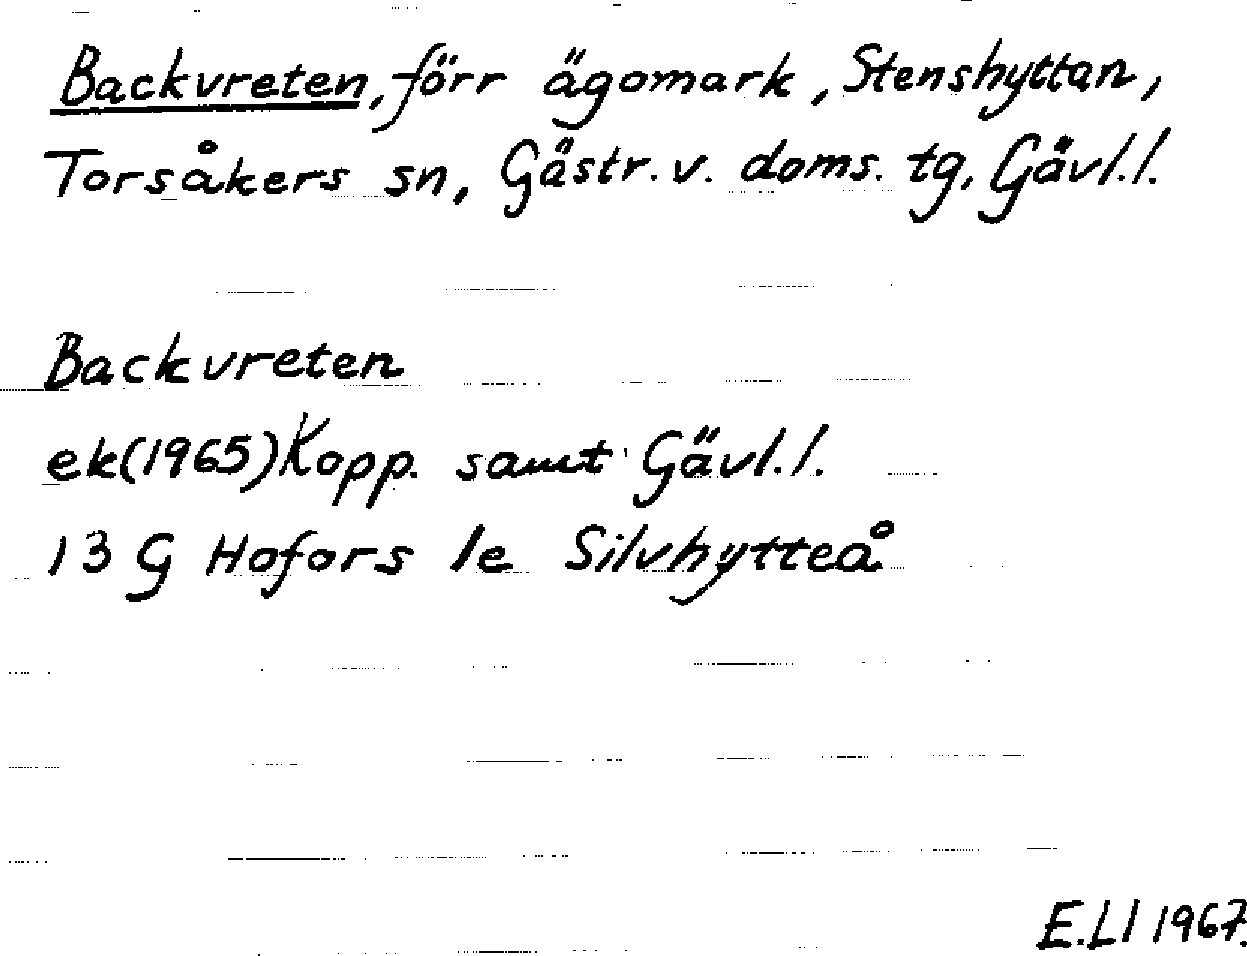 Backvreten, förr ägomark, Stenshyttan,
Torsåkers sn, Gästr. v. doms. tg, Gävl.l.
Backvreten
ek(1965)Kopp. samt Gävl.l.
13 G Hofors 1e Silvhytteå
E.Ll 1967.